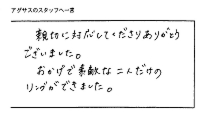 アグサスのスタッフへ一言
親切に対応してくださりありがとう
ございました。
おかげで素敵な二人だけの
リングができました。